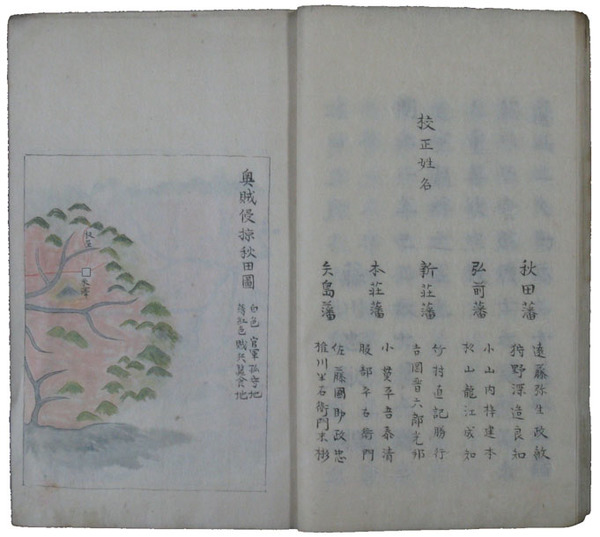 校正姓名
秋田藩
遠藤弥生政敏
狩野深造良知
弘前藩
小山内梓建本
松山龍江成知
新荘藩
竹村直記勝行
吉岡晋六郎光邦
本荘藩
小黄平吾泰清
服部平右衛門
矢島藩
佐藤国郎政忠
椎川半右衛門末彬
奥賊侵掠秋田圖
白色 官軍孤守地
薄紅色賊兵蠶食地